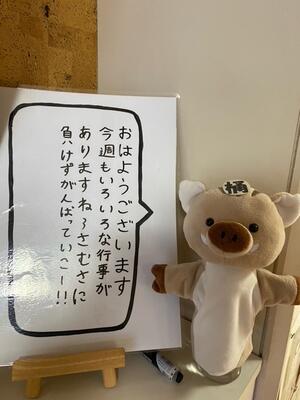 おはようございます
今週もいろいろな行事が
ありますね〜さむさに
負けずがんばっていこー!!